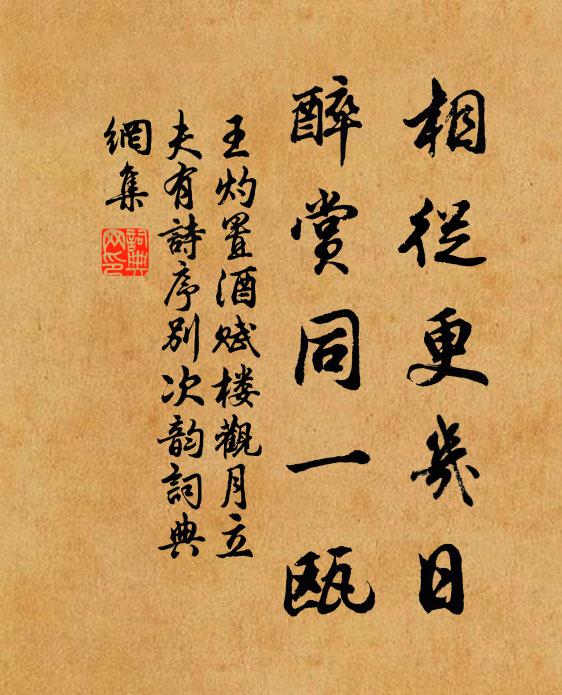 相從更幾日
醉賞同一甌
王灼置酒賦樓觀月立
夫有詩序別次韵詞典
網集
詞典網印